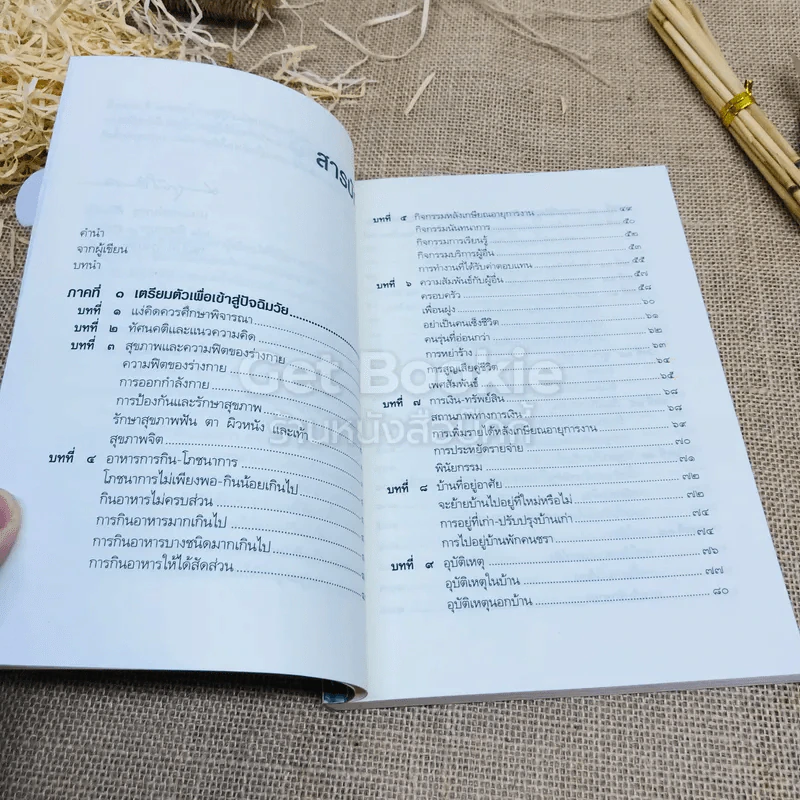 สารบั
คำนำ
จากผู้เขียน
บทนำ
ภาคที่ ๑ เตรียมตัวเพื่อเข้าสู่ปัจฉิมวัย
บทที่ ๑ แง่คิดควรศึกษาพิจารณา
บทที่ ๒ ทัศนคติและแนวความคิด
บทที่ ๓ สุขภาพและความฟิตของร่างกาย
ความฟิตของร่างกาย
การออกกำลังกาย
การป้องกันและรักษาสุขภาพ
รักษาสุขภาพฟัน ตา ผิวหนัง และเท้า
สุขภาพจิต
บทที่ ๔ อาหารการกิน-โภชนาการ
โภชนาการไม่เพียงพอ-กินน้อยเกินไป
กินอาหารไม่ครบส่วน
การกินอาหารมากเกินไป
การกินอาหารบางชนิดมากเกินไป
การกินอาหารให้ได้สัดส่วน
บทที่ ๕ กิจกรรมหลังเกษียณอายุการงาน ๔๙
กิจกรรมนันทนาการ ๕๐
กิจกรรมการเรียนรู้ ๕๒
กิจกรรมบริการผู้อื่น ๕๓
การทำงานที่ได้รับค่าตอบแทน ๕๕
บทที่ ๖ ความสัมพันธ์กับผู้อื่น ๕๗
ครอบครัว ๕๘
เพื่อนฝูง ๖๐
อย่าเป็นคนเซ็งชีวิต ๖๑
คนรุ่นที่อ่อนกว่า ๖๒
การหย่าร้าง ๖๓
การสูญเสียคู่ชีวิต ๖๔
เพศสัมพันธ์ ๖๕
บทที่ ๗ การเงิน-ทรัพย์สิน ๖๘
สถานภาพทางการเงิน ๖๘
การเพิ่มรายได้หลังเกษียณอายุการงาน ๖๙
การประหยัดรายจ่าย ๗๐
พินัยกรรม ๗๑
บทที่ ๘ บ้านที่อยู่อาศัย ๗๒
จะย้ายบ้านไปอยู่ที่ใหม่หรือไม่ ๗๒
การอยู่ที่เก่า-ปรับปรุงบ้านเก่า ๗๔
การไปอยู่บ้านพักคนชรา ๗๔
บทที่ ๙ อุบัติเหตุ ๗๖
อุบัติเหตุในบ้าน ๗๗
อุบัติเหตุนอกบ้าน ๘๐
Get Bookie
ร้านหนังสือบุ๊คกี้